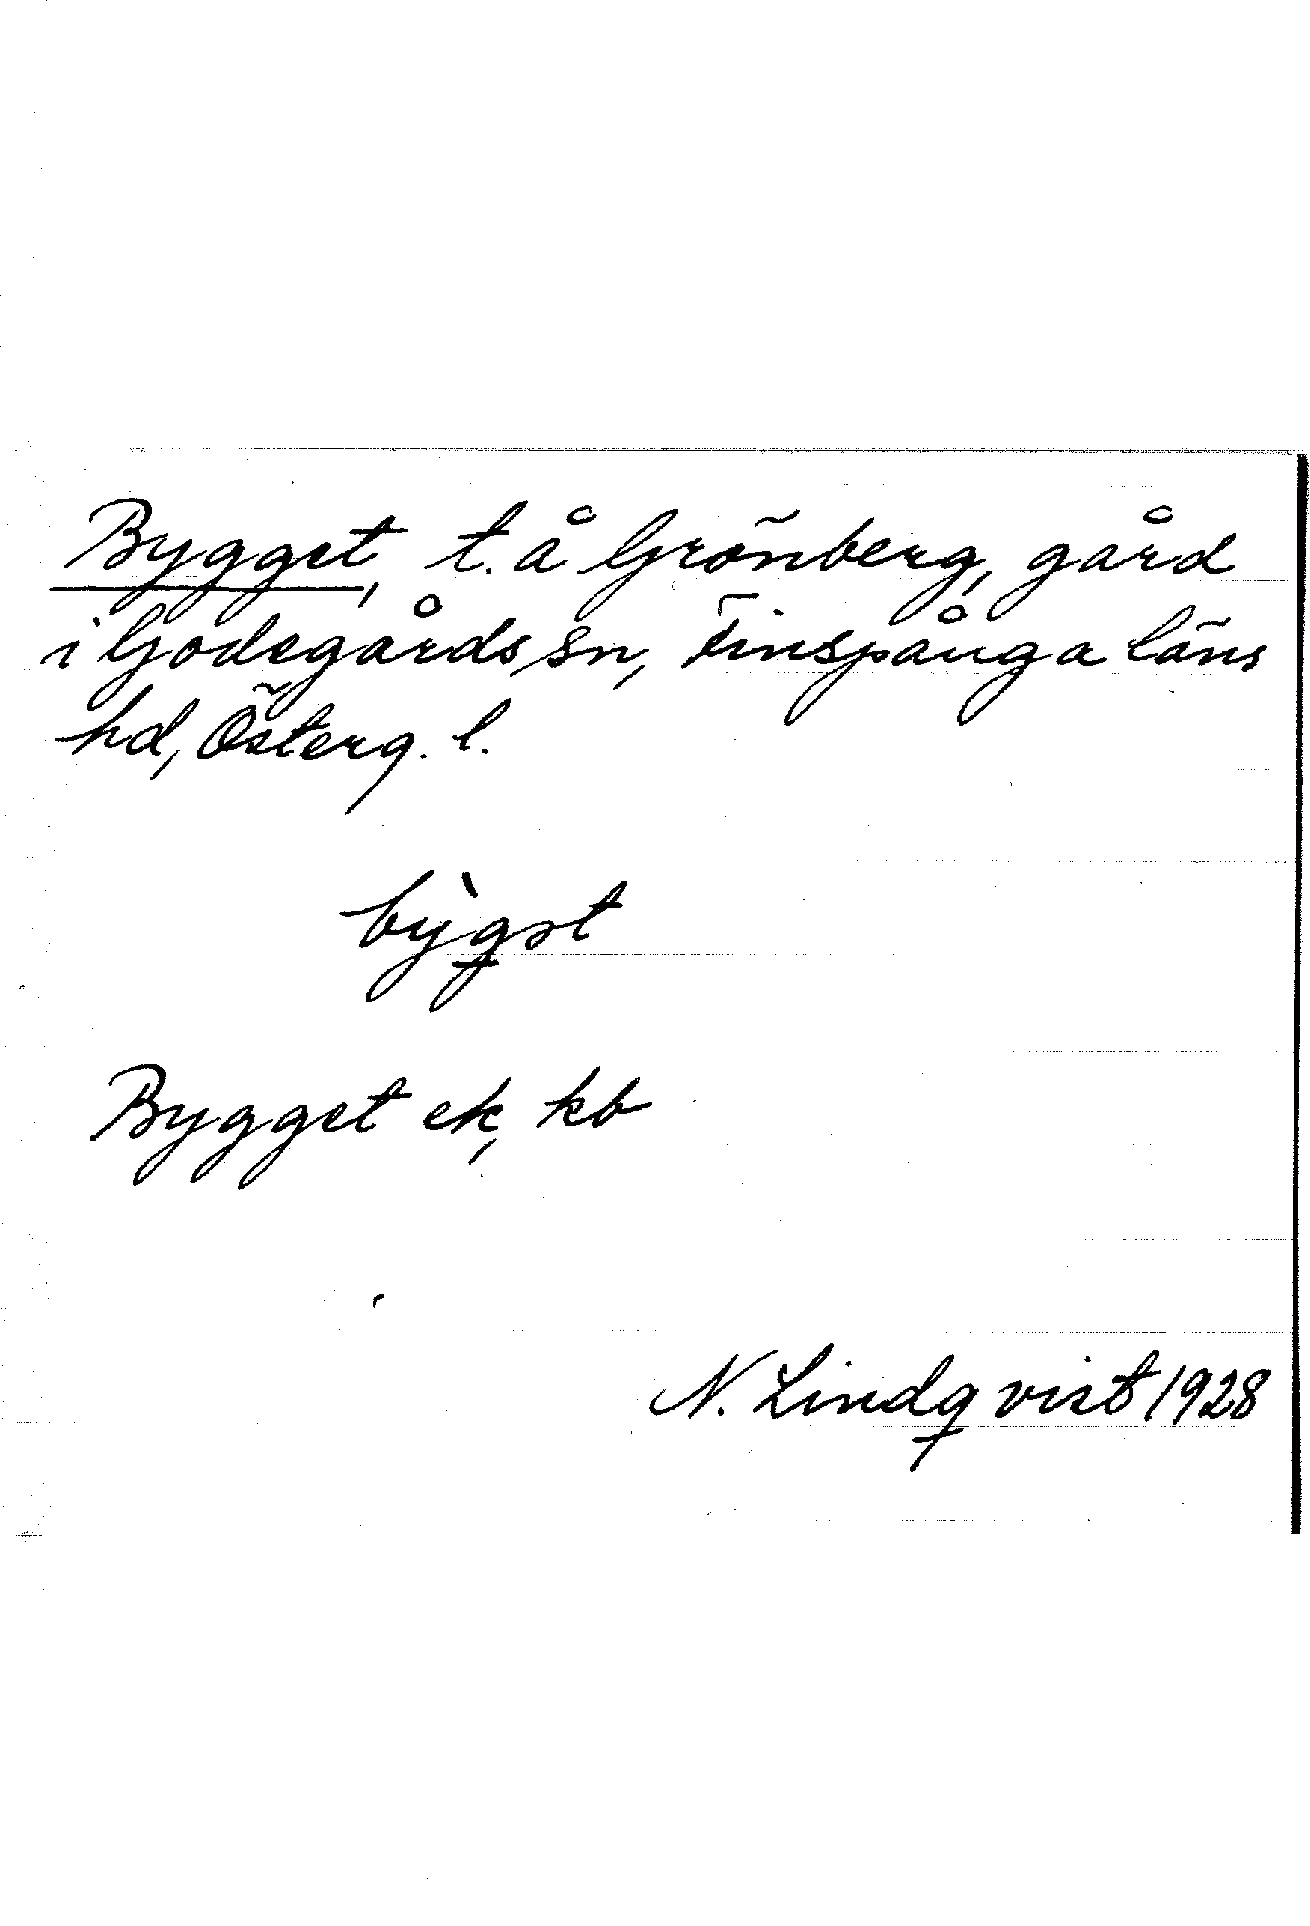 Bygget, t. å Grönberg, gård
i Godegårds sn, Finspånga läns
hd, Österg. l.
bỳgət
Bygget ek, kb
N. Lindqvist 1928